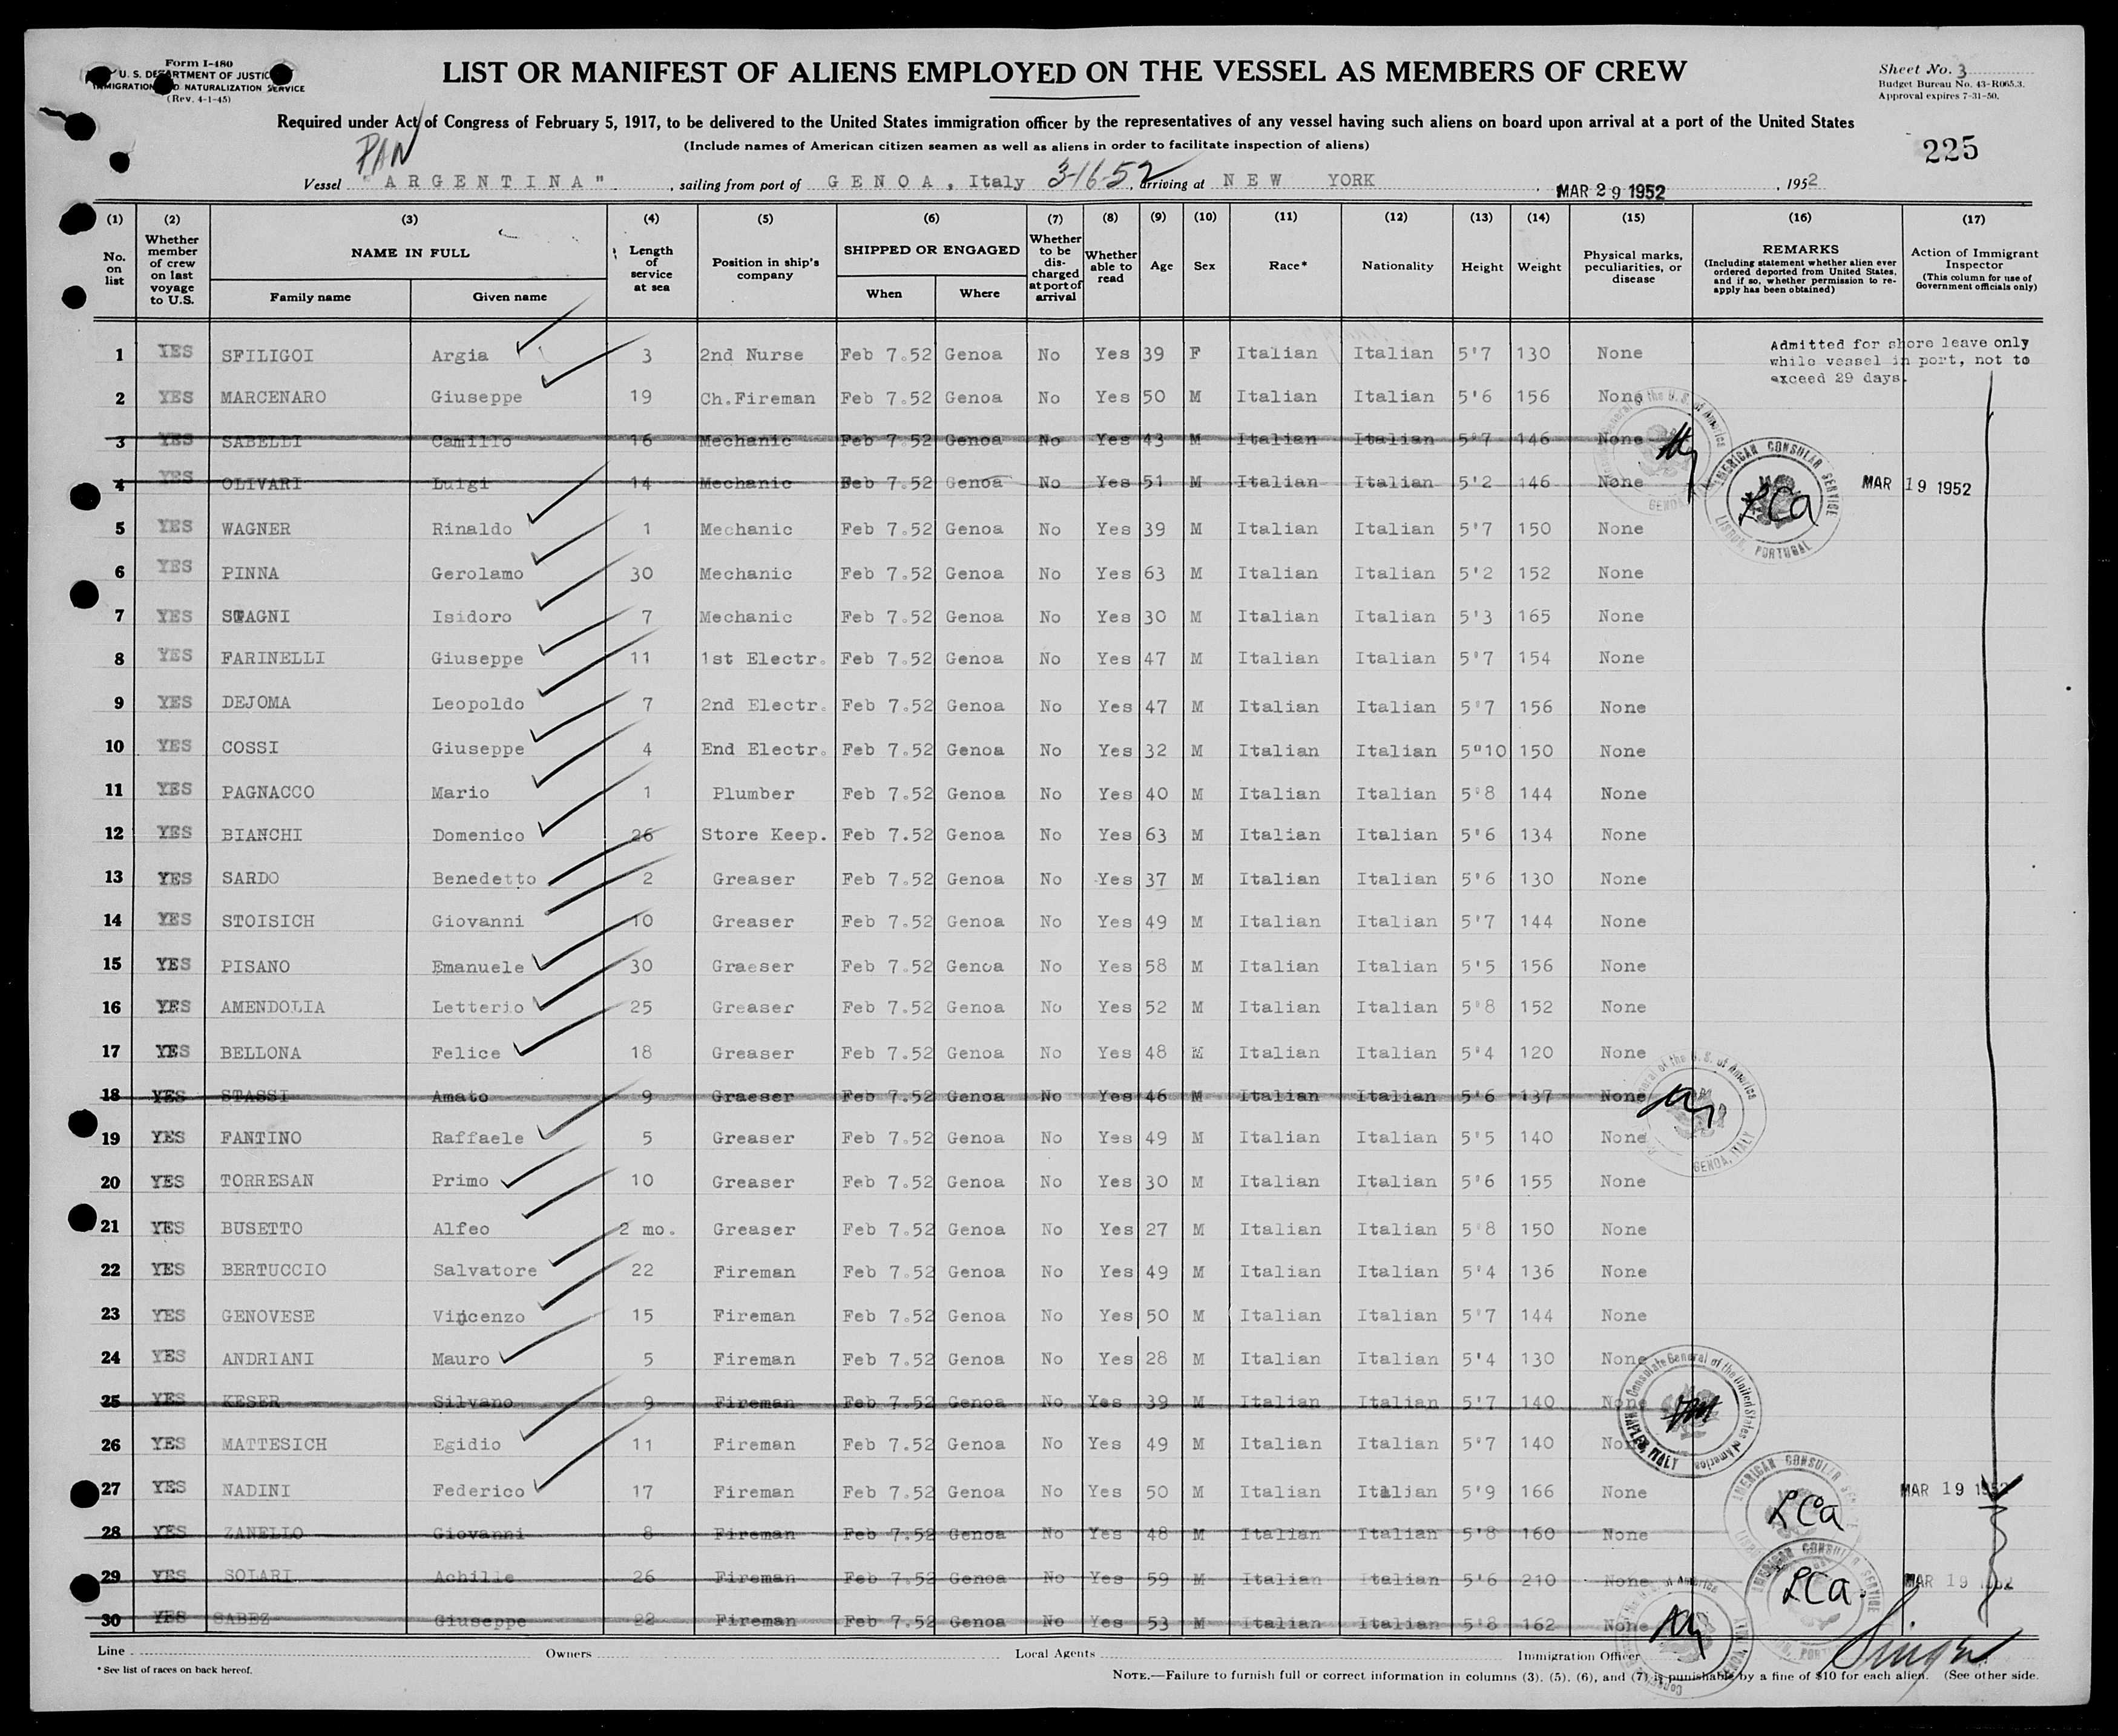 Form I-480
U. S. DEPARTMENT OF JUSTICE
IMMIGRATION AND NATURALIZATION SERVICE
(Rev. 4-1-45)
LIST OR MANIFEST OF ALIENS EMPLOYED ON THE VESSEL AS MEMBERS OF CREW
Sheet No. 3
Budget Bureau No. 43-R065.3.
Approval expires 7-31-50.
Required under Act of Congress of February 5, 1917, to be delivered to the United States immigration officer by the representatives of any vessel having such aliens on board upon arrival at a port of the United States
(Include names of American citizen seamen as well as aliens in order to facilitate inspection of aliens)
225
PAN
Vessel "ARGENTINA", sailing from port of GENOA, Italy 3-16-52, arriving at NEW YORK, MAR 29 1952, 1952
(1) (2) (3) (4) (5) (6) (7) (8) (9) (10) (11) (12) (13) (14) (15) (16) (17)
No. on list
Whether member of crew on last voyage to U.S.
NAME IN FULL
Family name Given name
Length of service at sea
Position in ship's company
SHIPPED OR ENGAGED
When Where
Whether to be discharged at port of arrival
Whether able to read
Age
Sex
Race*
Nationality
Height
Weight
Physical marks, peculiarities, or disease
REMARKS
(Including statement whether alien ever ordered deported from United States, and if so, whether permission to reapply has been obtained)
Action of Immigrant Inspector
(This column for use of Government officials only)
1 YES SFILIGOI Argia 3 2nd Nurse Feb 7.52 Genoa No Yes 39 F Italian Italian 5'7 130 None
Admitted for shore leave only
while vessel in port, not to
exceed 29 days.
2 YES MARCENARO Giuseppe 19 Ch.Fireman Feb 7.52 Genoa No Yes 50 M Italian Italian 5'6 156 None
3 YES SABELLI Camillo 16 Mechanic Feb 7.52 Genoa No Yes 43 M Italian Italian 5'7 146 None
4 YES OLIVARI Luigi 14 Mechanic Feb 7.52 Genoa No Yes 51 M Italian Italian 5'2 146 None
AMERICAN CONSULAR SERVICE LISBON, PORTUGAL LCa MAR 19 1952
5 YES WAGNER Rinaldo 1 Mechanic Feb 7.52 Genoa No Yes 39 M Italian Italian 5'7 150 None
6 YES PINNA Gerolamo 30 Mechanic Feb 7.52 Genoa No Yes 63 M Italian Italian 5'2 152 None
7 YES STAGNI Isidoro 7 Mechanic Feb 7.52 Genoa No Yes 30 M Italian Italian 5'3 165 None
8 YES FARINELLI Giuseppe 11 1st Electr. Feb 7.52 Genoa No Yes 47 M Italian Italian 5'7 154 None
9 YES DEJOMA Leopoldo 7 2nd Electr. Feb 7.52 Genoa No Yes 47 M Italian Italian 5'7 156 None
10 YES COSSI Giuseppe 4 End Electr. Feb 7.52 Genoa No Yes 32 M Italian Italian 5"10 150 None
11 YES PAGNACCO Mario 1 Plumber Feb 7.52 Genoa No Yes 40 M Italian Italian 5'8 144 None
12 YES BIANCHI Domenico 26 Store Keep. Feb 7.52 Genoa No Yes 63 M Italian Italian 5'6 134 None
13 YES SARDO Benedetto 2 Greaser Feb 7.52 Genoa No Yes 37 M Italian Italian 5'6 130 None
14 YES STOISICH Giovanni 10 Greaser Feb 7.52 Genoa No Yes 49 M Italian Italian 5'7 144 None
15 YES PISANO Emanuele 30 Graeser Feb 7.52 Genoa No Yes 58 M Italian Italian 5'5 156 None
16 YES AMENDOLIA Letterio 25 Greaser Feb 7.52 Genoa No Yes 52 M Italian Italian 5'8 152 None
17 YES BELLONA Felice 18 Greaser Feb 7.52 Genoa No Yes 48 M Italian Italian 5'4 120 None
18 YES STASSI Amato 9 Graeser Feb 7.52 Genoa No Yes 46 M Italian Italian 5'6 137 None
19 YES FANTINO Raffaele 5 Greaser Feb 7.52 Genoa No Yes 49 M Italian Italian 5'5 140 None
GENOA, ITALY
20 YES TORRESAN Primo 10 Greaser Feb 7.52 Genoa No Yes 30 M Italian Italian 5'6 155 None
21 YES BUSETTO Alfeo 2 mo. Greaser Feb 7.52 Genoa No Yes 27 M Italian Italian 5'8 150 None
22 YES BERTUCCIO Salvatore 22 Fireman Feb 7.52 Genoa No Yes 49 M Italian Italian 5'4 136 None
23 YES GENOVESE Vincenzo 15 Fireman Feb 7.52 Genoa No Yes 50 M Italian Italian 5'7 144 None
24 YES ANDRIANI Mauro 5 Fireman Feb 7.52 Genoa No Yes 28 M Italian Italian 5'4 130 None
25 YES KESER Silvano 9 Fireman Feb 7.52 Genoa No Yes 39 M Italian Italian 5'7 140 None
Consulate General of the United States of America NAPLES, ITALY
26 YES MATTESICH Egidio 11 Fireman Feb 7.52 Genoa No Yes 49 M Italian Italian 5'7 140 None
27 YES NADINI Federico 17 Fireman Feb 7.52 Genoa No Yes 50 M Italian Italian 5'9 166 None
AMERICAN CONSULAR SERVICE LCa MAR 19 1952
28 YES ZANELLO Giovanni 8 Fireman Feb 7.52 Genoa No Yes 48 M Italian Italian 5'8 160 None
29 YES SOLARI Achille 26 Fireman Feb 7.52 Genoa No Yes 59 M Italian Italian 5'6 210 None
AMERICAN CONSULAR SERVICE LCa. MAR 19 1952
30 YES SABEZ Giuseppe 22 Fireman Feb 7.52 Genoa No Yes 53 M Italian Italian 5'8 162 None
Line Owners Local Agents Immigration Officer
* See list of races on back hereof.
NOTE.—Failure to furnish full or correct information in columns (3), (5), (6), and (7) is punishable by a fine of $10 for each alien. (See other side.